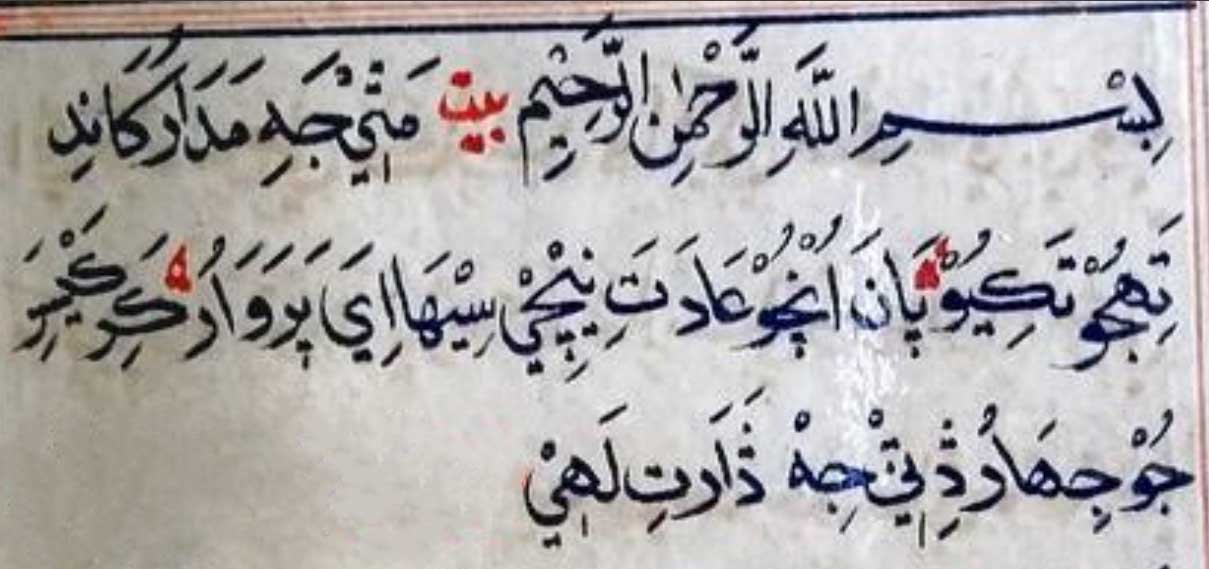 بِسْــــمِ اللّٰهِ الرَّحْمٰنِ الرَّحِيْمِ بيت مَتيْ جَهِ مَدَارُ كَانِدِ
تِهجُوْ تَكِيُوْ پَانَ اُنْجُوْ عَادَتِ سِيْهَا اِيَ پَرَوَارُ كَرِ كَيْسَرِ
جُوْ جِهَارُ جِهْ ڎَارَتِ لَهيْ